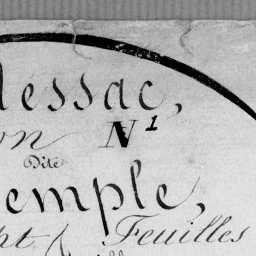 lessac,
on N1
Dite
emple,
pt Feuilles